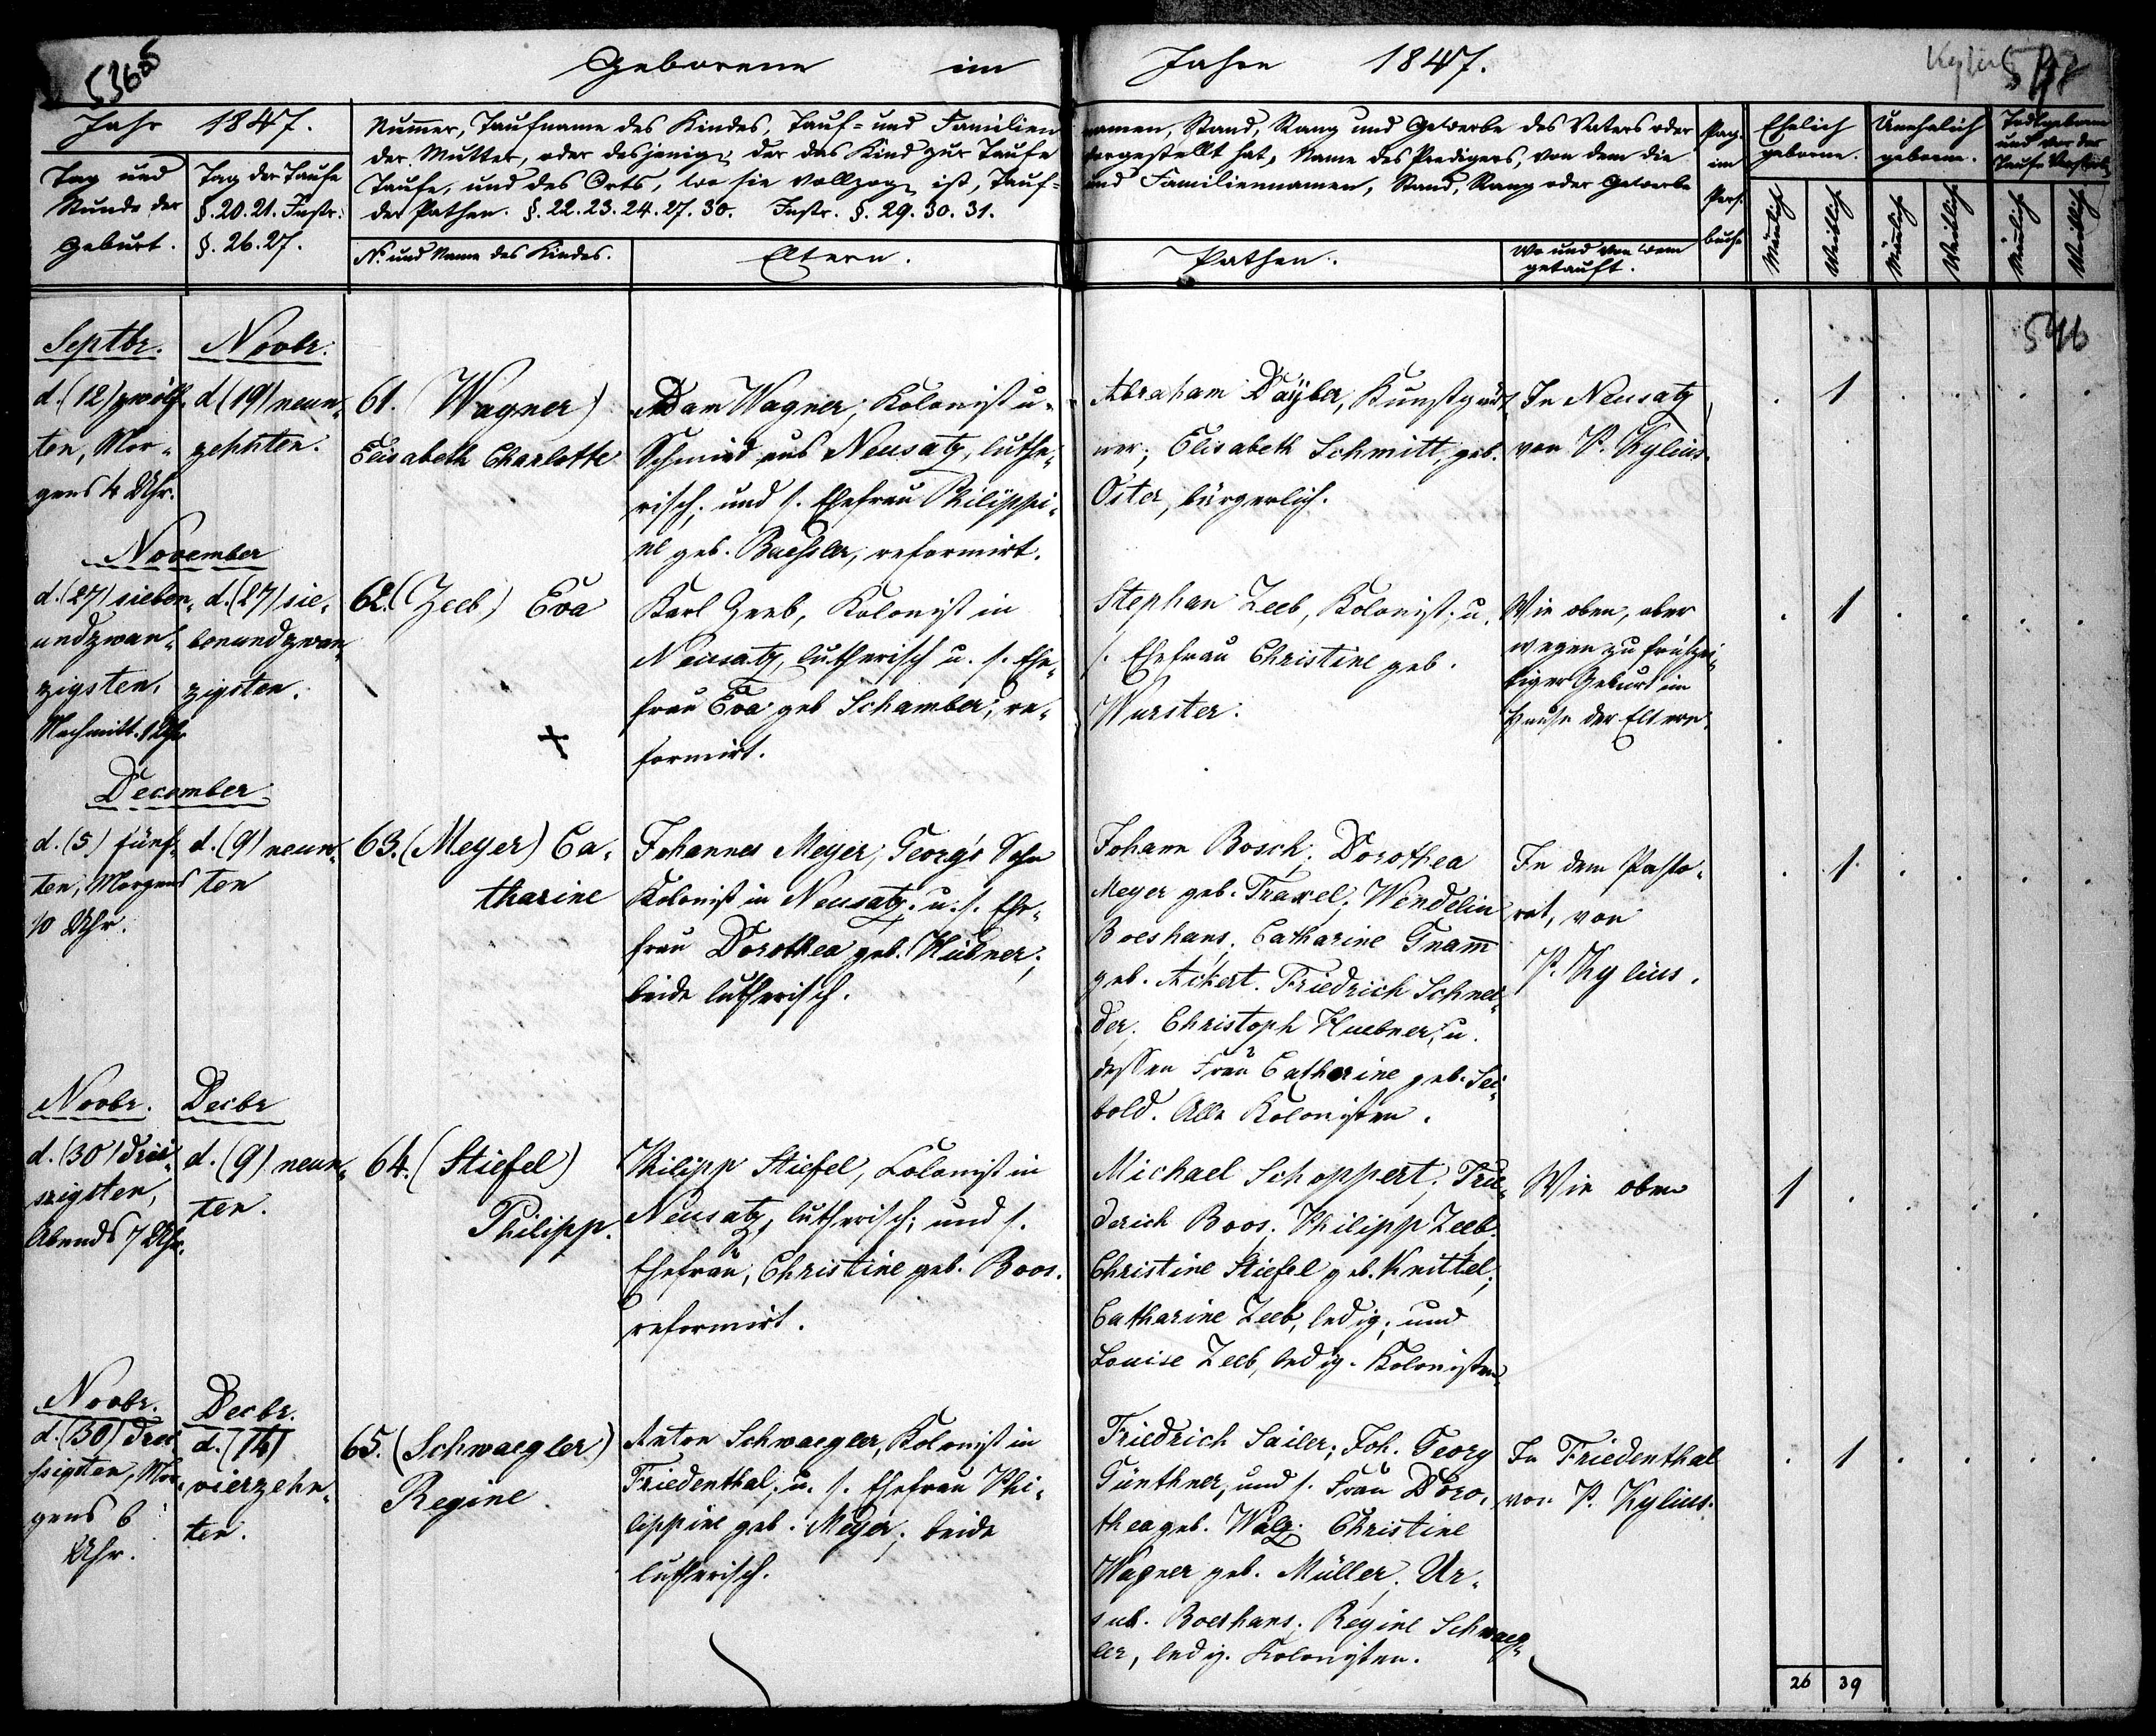 Geborene im Jahre 1847.
Jahr 1847.
Tag und
Stunde der
Geburt.
Tag der Taufe
§. 20. 21. Instr.
§. 26. 27.
Nummer, Taufname des Kindes, Tauf- und Familien
der Mutter, oder desjenigen der das Kind zur Taufe
Taufe, und des Orts, wo sie vollzogen ist, Tauf-
der Pathen. §. 22. 23. 24. 27. 30. Instr. §. 29. 30. 31.
No. und Name des Kindes.
Eltern.
namen, Stand, Rang und Gewerbe des Vaters oder
dargestellt hat, Name des Predigers, von dem die
und Familiennamen, Stand, Rang oder Gewerbe
Pathen.
Wo und von wem
getauft.
Pag.
im
Pers.
buche
Ehelich
geborene.
Unehelich
geborene.
Todtgeborene
und vor der
Taufe Verstorb.
Männlich
Weiblich
Männlich
Weiblich
Männlich
Weiblich
546
Septbr.
d. (12) zwölf-
ten, Mor-
gens 4 Uhr.
Novbr.
d. (19) neun-
zehnten.
61. (Wagner)
Elisabeth Charlotte
Adam Wagner, Kolonist u.
Schmied aus Neusatz, luthe-
risch, und s. Ehefrau Philippi-
ne geb. Buehsler, reformirt.
Abraham Däÿbler, Kunstgärt-
ner; Elisabeth Schmitt, geb.
Oster, bürgerlich.
In Neusatz
von P. Kylius.
1
November
d. (27) sieben-
undzwan-
zigsten,
Nachmitt. 1 Uhr
d. (27) sie-
benundzwan-
zigsten.
62. (Zeeb) Eva
Karl Zeeb, Kolonist in
Neusatz, lutherisch u. s. Ehe-
frau Eva geb Schamber, re-
formirt.
Stephan Zeeb, Kolonist, u.
s. Ehefrau Christine geb.
Wurster.
Wie oben, aber
wegen zu frühzei-
tiger Geburt im
Hause der Eltern.
1
December
d. (5) fünf-
ten, Morgens
10 Uhr.
d. (9) neun-
ten
63. (Meyer) Ca-
tharine
Johannes Meyer, Georgs Sohn
Kolonist in Neusatz, u. s. Ehe-
frau Dorothea geb. Hübner;
beide lutherisch.
Johann Bosch; Dorothea
Meyer geb. Traxel; Wendelin
Boeshans; Catharine Gnam̄
geb. Ackert. Friedrich Schnei-
der; Christoph Huebner, u.
dessen Frau Catharine geb. Sei-
bold. Alle Kolonisten.
In dem Pasto-
rat, von
P. Kylius.
1
Novbr.
d. (30) drei-
szigsten,
Abends 7 Uhr.
Decbr
d. (9) neun-
ten.
64. (Stiefel)
Philipp.
Philipp Stiefel, Colonist in
Neusatz, lutherisch; und s.
Ehefrau, Christine geb. Boos.
reformirt.
Michael Schoppert; Frie-
derich Boos; Philipp Zeeb;
Christine Stiefel geb. Knittel;
Catharine Zeeb, ledig; und
Louise Zeeb, ledig. Kolonisten.
Wie oben
1
Novbr.
d. (30) drei-
ssigsten, Mor-
gens 6
Uhr.
Decbr.
d. (14)
vierzehn-
ten.
65. (Schwaegler)
Regine
Anton Schwaegler, Kolonist in
Friedenthal; u. s. Ehefrau Phi-
lippine geb. Meyer; beide
lutherisch.
Friedrich Sailer; Joh. Georg
Günthner, und s. Frau Doro-
thea geb. Walz; Christine
Wagner geb. Müller; Ur-
sul. Boeshans; Regine Schwaeg-
ler, ledig. Kolonisten.
In Friedenthal
von P. Kylius.
1
26
39